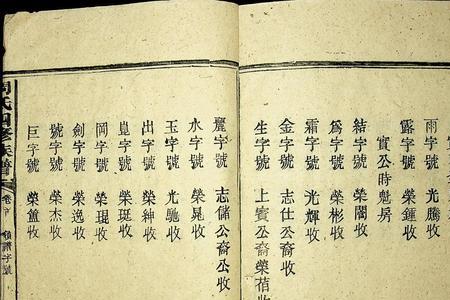 雨字號 光騰收
露字號 榮鍾收
寶公時魁房
結字號 榮閣收
為字號 榮彬收
霜字號 光輝收
金字號 志仕公裔收
生字號 上寶公裔榮蓓收
麗字號 志儲公裔公收
水字號 榮晃收
玉字號 光馳收
出字號 榮紳收
崑字號 榮珽收
岡字號 榮琨收
劍字號 榮逸收
號字號 榮杰收
巨字號 榮
氏四修族譜 卷首 領譜字號